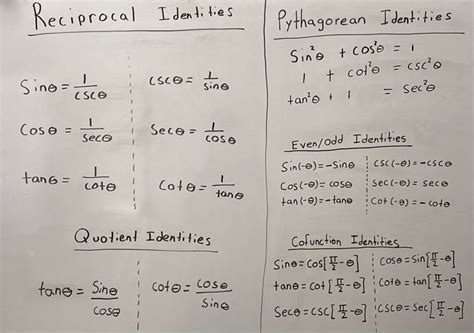 Reciprocal Identities
Sinθ = 1/cscθ
cscθ = 1/sinθ
Cosθ = 1/secθ
Secθ = 1/cosθ
tanθ = 1/cotθ
Cotθ = 1/tanθ
Quotient Identities
tanθ = Sinθ/cosθ
cotθ = cosθ/sinθ
Pythagorean Identities
Sin²θ + cos²θ = 1
1 + cot²θ = csc²θ
tan²θ + 1 = sec²θ
Even/odd Identities
Sin(-θ)=-Sinθ
csc(-θ)=-cscθ
Cos(-θ)= cosθ
sec(-θ)= secθ
tan(-θ)=-tanθ
Cot(-θ)=-cotθ
Cofunction Identities
Sinθ=Cos[π/2-θ]
cosθ=Sin[π/2-θ]
tanθ=cot[π/2-θ]
Cotθ=tan[π/2-θ]
Secθ=csc[π/2-θ]
cscθ=Sec[π/2-θ]